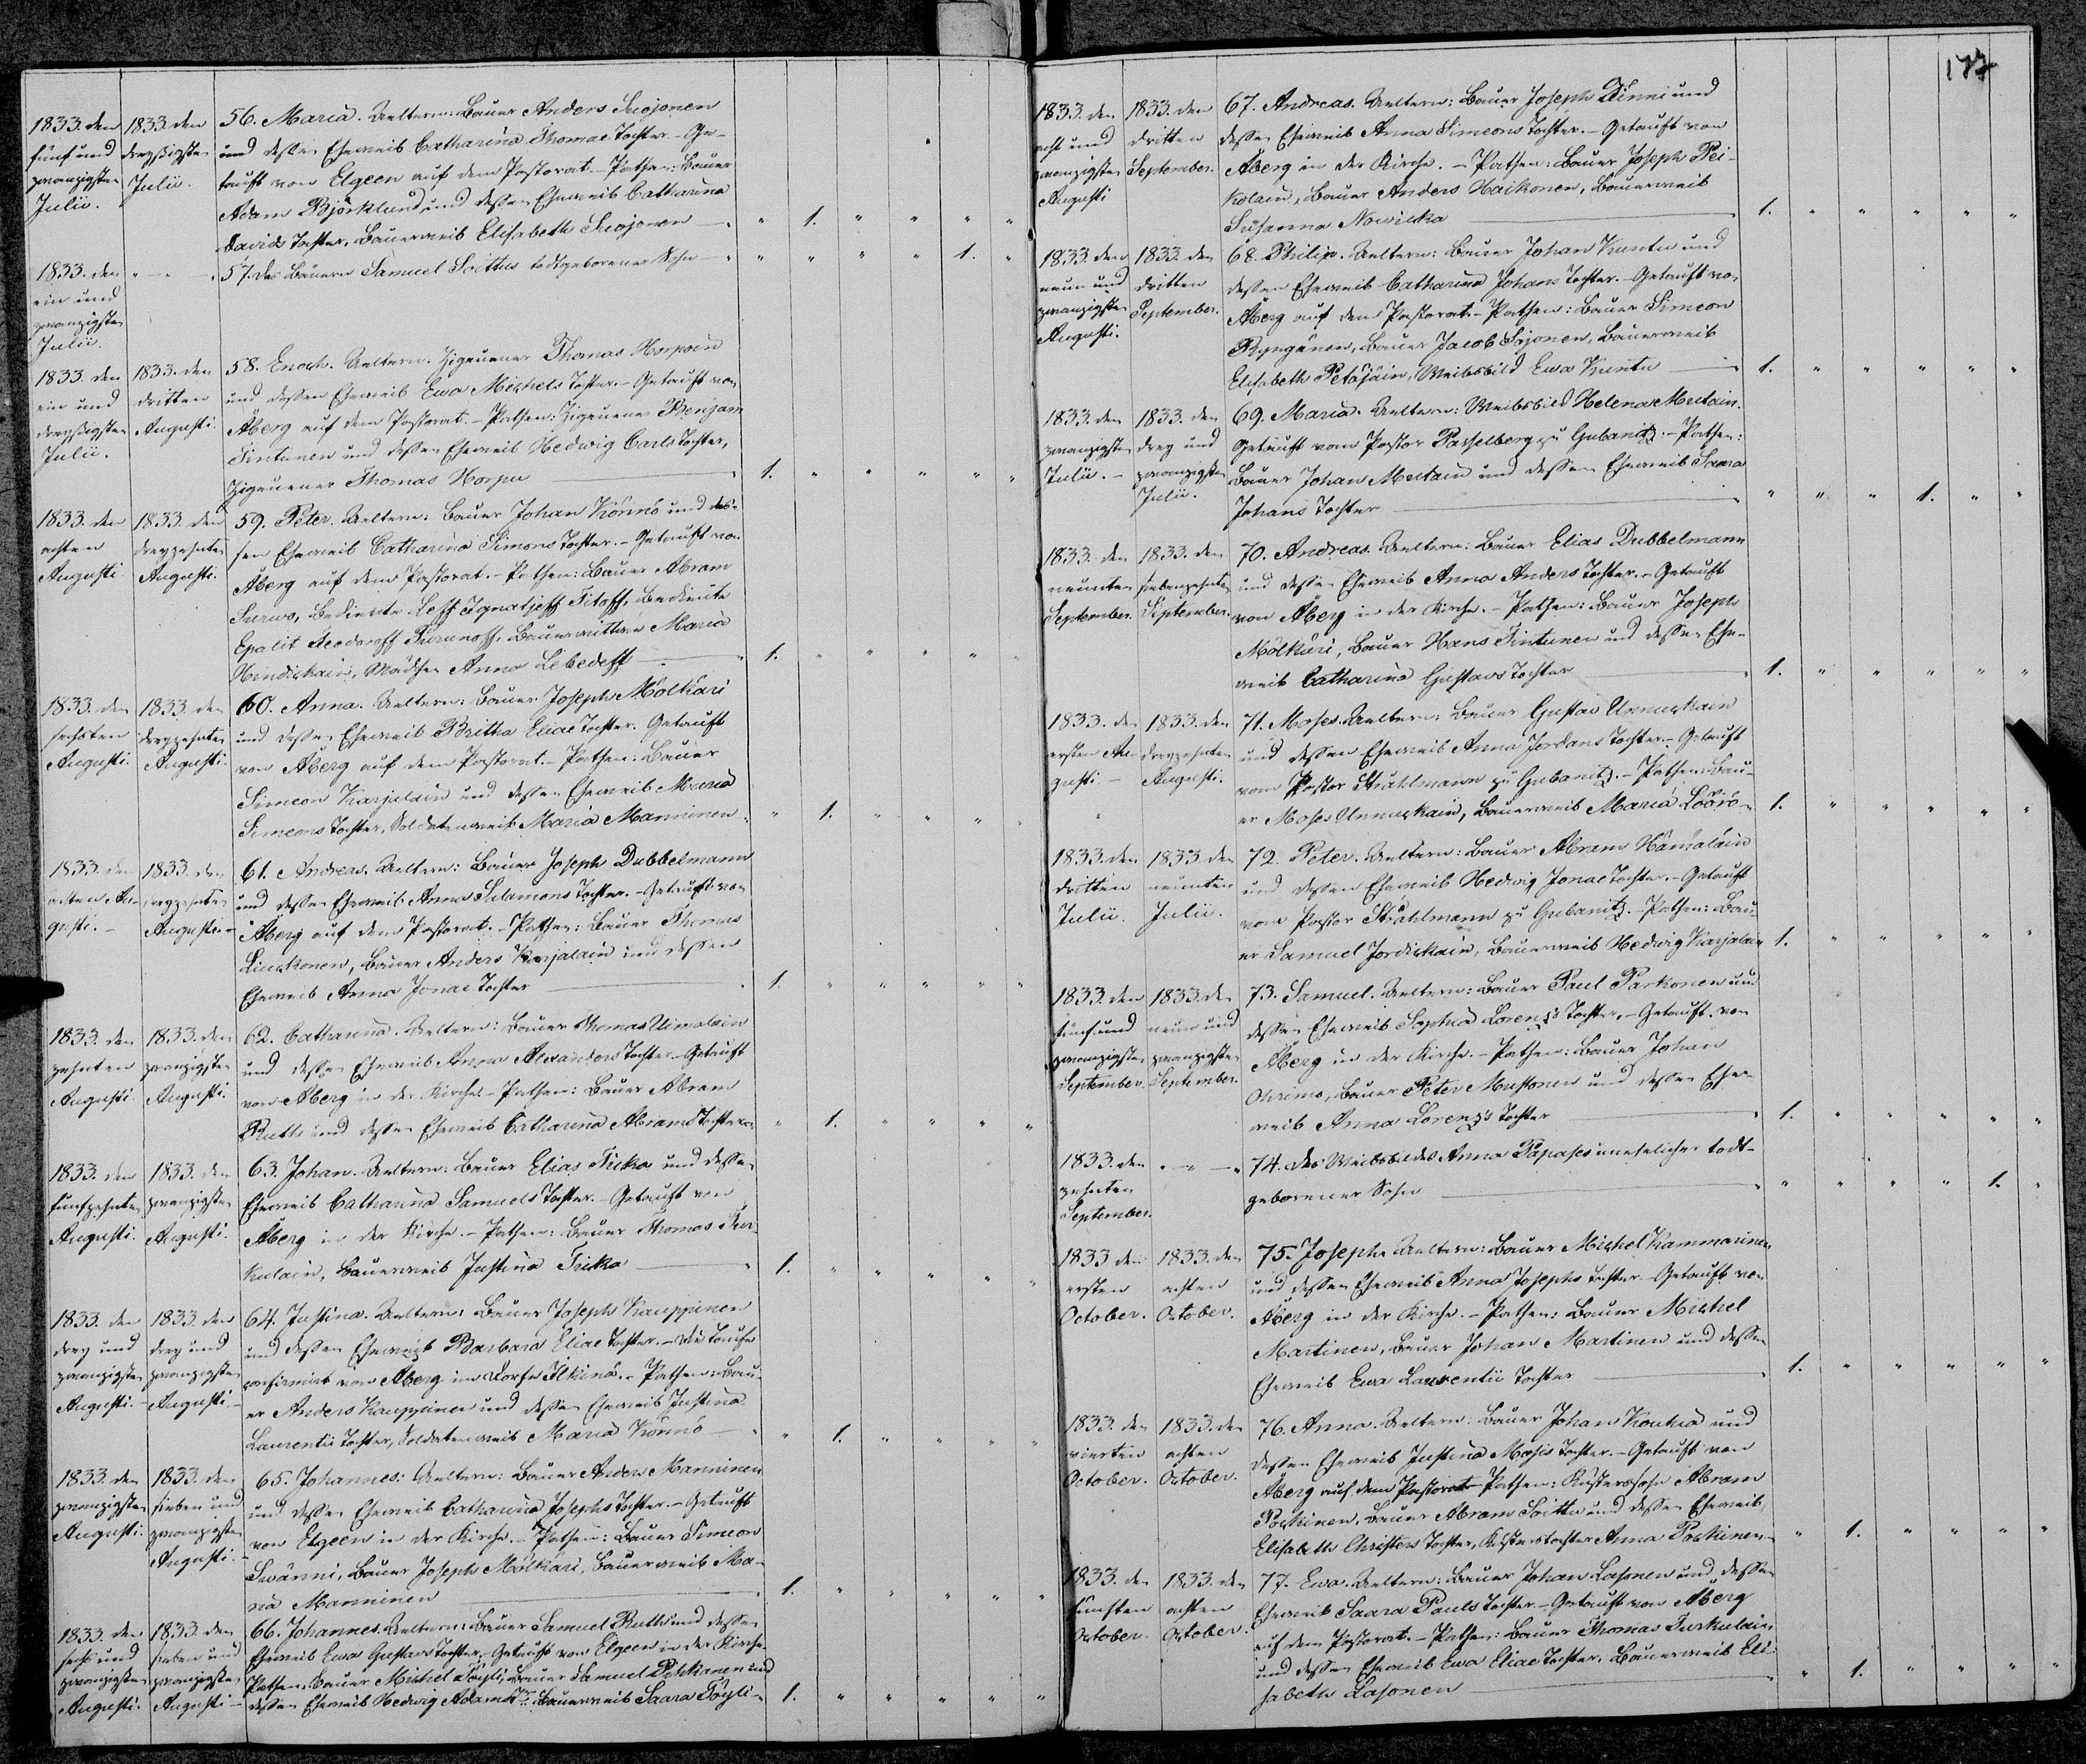 1833. den fünf und zwanzigsten Julii.
1833. den dreyßigsten Julii.
56. Maria. Aeltern: Bauer Anders Suojonen
und dessen Eheweib Catharina Thomae Tochter. - Ge-
tauft von Elgeen auf dem Pastorat. - Pathen: Bauer
Adam Björklund und dessen Eheweib Catharina
Davids Tochter, Bauerweib Elisabeth Suojonen - " 1. " " " "
1833. den ein und zwanzigsten Julii.
" - " - "
57. des Bauern Samuel Soittus todtgeborener Sohn - " " " " 1. "
1833. den ein und dreyßigsten Julii.
1833. den dritten Augusti.
58. Enoch. Aeltern: Zigeuner Thomas Horpoin
und dessen Eheweib Ewa Michels Tochter. - Getauft von
Åberg auf dem Pastorat. - Pathen: Zigeuner Benjam
Tintunen und dessen Eheweib Hedwig Carls Tochter,
Zigeuner Thomas Horpu - 1. " " " " "
1833. den achten Augusti.
1833. den dreyzehnten Augusti.
59. Peter. Aeltern: Bauer Johan Könnö und des-
sen Eheweib Catharina Simons Tochter. - Getauft von
Åberg auf dem Pastorat. - Pathen: Bauer Abram
Surus, Bediente Leff Ignatjeff Titoff, Bediente
Epalit Feodoroff Turunoff, Bauerwittwe Maria
Hindikain, Mädchen Anna Lebedeff - 1. " " " " "
1833. den sechsten Augusti.
1833. den dreyzehnten Augusti.
60. Anna. Aeltern: Bauer Joseph Mölkäri
und dessen Eheweib Britha Eliae Tochter. Getauft
von Åberg auf dem Pastorat. - Pathen: Bauer
Simeon Karjalain und dessen Eheweib Maria
Simeons Tochter, Soldatenweib Maria Manninen - " 1. " " " "
1833. den achten Augusti. -
1833. den dreyzehnten Augusti. -
61. Andreas. Aeltern: Bauer Joseph Dubbelmann
und dessen Eheweib Anna Salomons Tochter. - Getauft von
Åberg auf dem Pastorat. - Pathen: Bauer Thomas
Liuckonen, Bauer Anders Karjalain und dessen
Eheweib Anna Jonae Tochter - 1. " " " " "
1833. den zehnten Augusti.
1833. den zwanzigsten Augusti.
62. Catharina. Aeltern: Bauer Thomas Uimolain
und dessen Eheweib Anna Alexanders Tochter. - Getauft
von Åberg in der Kirche. - Pathen: Bauer Abram
Ruths und dessen Eheweib Catharina Abrams Tochter - " 1. " " " "
1833. den funfzehnten Augusti.
1833. den zwanzigsten Augusti.
63. Johan. Aeltern: Bauer Elias Tricka und dessen
Eheweib Catharina Samuels Tochter. - Getauft von
Åberg in der Kirche. - Pathen: Bauer Thomas Tur-
kulain, Bauerweib Justina Tricka - 1. " " " " "
1833. den drey und zwanzigsten Augusti. -
1833. den drey und zwanzigsten Augusti. -
64. Justina. Aeltern: Bauer Joseph Kauppinen
und dessen Eheweib Barbara Eliae Tochter. - Die Taufe
confirmirt von Åberg im Dorfe Ilkinö. - Pathen: Bau-
er Anders Kauppinen und dessen Eheweib Justina
Laurentii Tochter, Soldatenweib Maria Könnö - " 1. " " " "
1833. den zwanzigsten Augusti.
1833. den sieben und zwanzigsten Augusti. -
65. Johannes: Aeltern: Bauer Anders Manninen
und dessen Eheweib Catharina Josephs Tochter. - Getauft
von Elgeen in der Kirche. - Pathen: Bauer Simeon
Swänni, Bauer Joseph Mölkäri, Bauerweib Ma-
ria Manninen - 1. " " " " "
1833. den sechs und zwanzigsten Augusti.
1833. den sieben und zwanzigsten Augusti -
66. Johannes. Aeltern: Bauer Samuel Ruths und dessen
Eheweib Ewa Gustavs Tochter. - Getauft von Elgeen in der Kirche
Pathen. Bauer Michel Töyli, Bauer Samuel Pykkanen und
dessen Eheweib Hedwig Adams Tr. Bauerweib Saara Töyli - 1. " " " " "
177
1833. den acht und zwanzigsten Augusti
1833. den dritten September.
67. Andreas. Aeltern: Bauer Joseph Kinni und
dessen Eheweib Anna Simeons Tochter. - Getauft von
Åberg in der Kirche. - Pathen: Bauer Joseph Pei-
kolain, Bauer Anders Haikonen, Bauerweib
Susanna Nowicka - 1. " " " " "
1833. den neun und zwanzigsten Augusti.
1833. den dritten September.
68. Philip. Aeltern: Bauer Johan Kuntu und
dessen Eheweib Catharina Johans Tochter. - Getauft von
Åberg auf dem Pastorat. - Pathen: Bauer Simeon
Ryngänen, Bauer Jacob Sojonen, Bauerweib
Elisabeth Petäjäin, Weibsbild Ewa Kuntu - 1. " " " " "
1833. den zwanzigsten Julii. -
1833. den drey und zwanzigsten Julii.
69. Maria. Aeltern: Weibsbild Helena Mutain.
Getauft vom Pastor Passelberg zu Gubanitz. - Pathen:
Bauer Johan Mutain und dessen Eheweib Saara
Johans Tochter - " " " 1. " "
1833. den neunten September.
1833. den siebenzehnten September.
70. Andreas. Aeltern: Bauer Elias Dubbelmann
und dessen Eheweib Anna Anders Tochter. - Getauft
von Åberg in der Kirche. - Pathen: Bauer Joseph
Mölkäri, Bauer Hans Tintunen und dessen Ehe-
weib Catharina Gustavs Tochter - 1. " " " " "
1833. den ersten Augusti -
1833. den dreyzehnten Augusti.
71. Moses. Aeltern: Bauer Gustav Unnuckain
und dessen Eheweib Anna Jordans Tochter. - Getauft
vom Pastor Stråhlmann zu Gubanitz. - Pathen: Bau-
er Moses Unnuckain, Bauerweib Maria Löörö - 1. " " " " "
1833. den dritten Julii.
1833. den neunten Julii.
72. Peter. Aeltern: Bauer Abram Hämäläin
und dessen Eheweib Hedwig Jonae Tochter. - Getauft
vom Pastor Stråhlmann zu Gubanitz. - Pathen: Bau-
er Samuel Jordickain, Bauerweib Hedwig Karjalain 1. " " " " "
1833. den fünf und zwanzigsten September.
1833. den neun und zwanzigsten September.
73. Samuel. Aeltern: Bauer Paul Parkonen und
dessen Eheweib Sophia Lorenz's Tochter. - Getauft von
Åberg in der Kirche. - Pathen: Bauer Johan
Ohrimo, Bauer Peter Mustonen und dessen Ehe-
weib Anna Lorenz's Tochter - 1. " " " " "
1833. den zehnten September.
" - " - "
74. des Weibsbildes Anna Papases unehelicher todt-
geborener Sohn - " " " " 1. "
1833 den ersten October.
1833. den achten October.
75. Joseph. Aeltern: Bauer Michel Kammarinen
und dessen Eheweib Anna Josephs Tochter. - Getauft von
Åberg in der Kirche. - Pathen: Bauer Michel
Martinen, Bauer Johan Martinen und dessen
Eheweib Ewa Laurentii Tochter - 1. " " " " "
1833. den vierten October.
1833. den achten October.
76. Anna. Aeltern: Bauer Johan Kouhia und
dessen Eheweib Justina Mosis Tochter. - Getauft von
Åberg auf dem Pastorat - Pathen: Küsterssohn Abram
Poskinen, Bauer Abram Soittu und dessen Eheweib,
Elisabeth Christers Tochter, Küsterstochter Anna Poskinen - " 1. " " " "
1833. den fünften October.
1833. den achten October.
77. Ewa. Aeltern: Bauer Johan Lasonen und dessen
Eheweib Saara Pauls Tochter - Getauft von Åberg
auf dem Pastorat. - Pathen: Bauer Thomas Turkulain
und dessen Eheweib Ewa Eliae Tochter. Bauerweib Eli-
sabeth Lasonen - " 1. " " " "